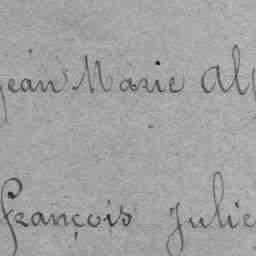 Jean Marie Alp
François Julie